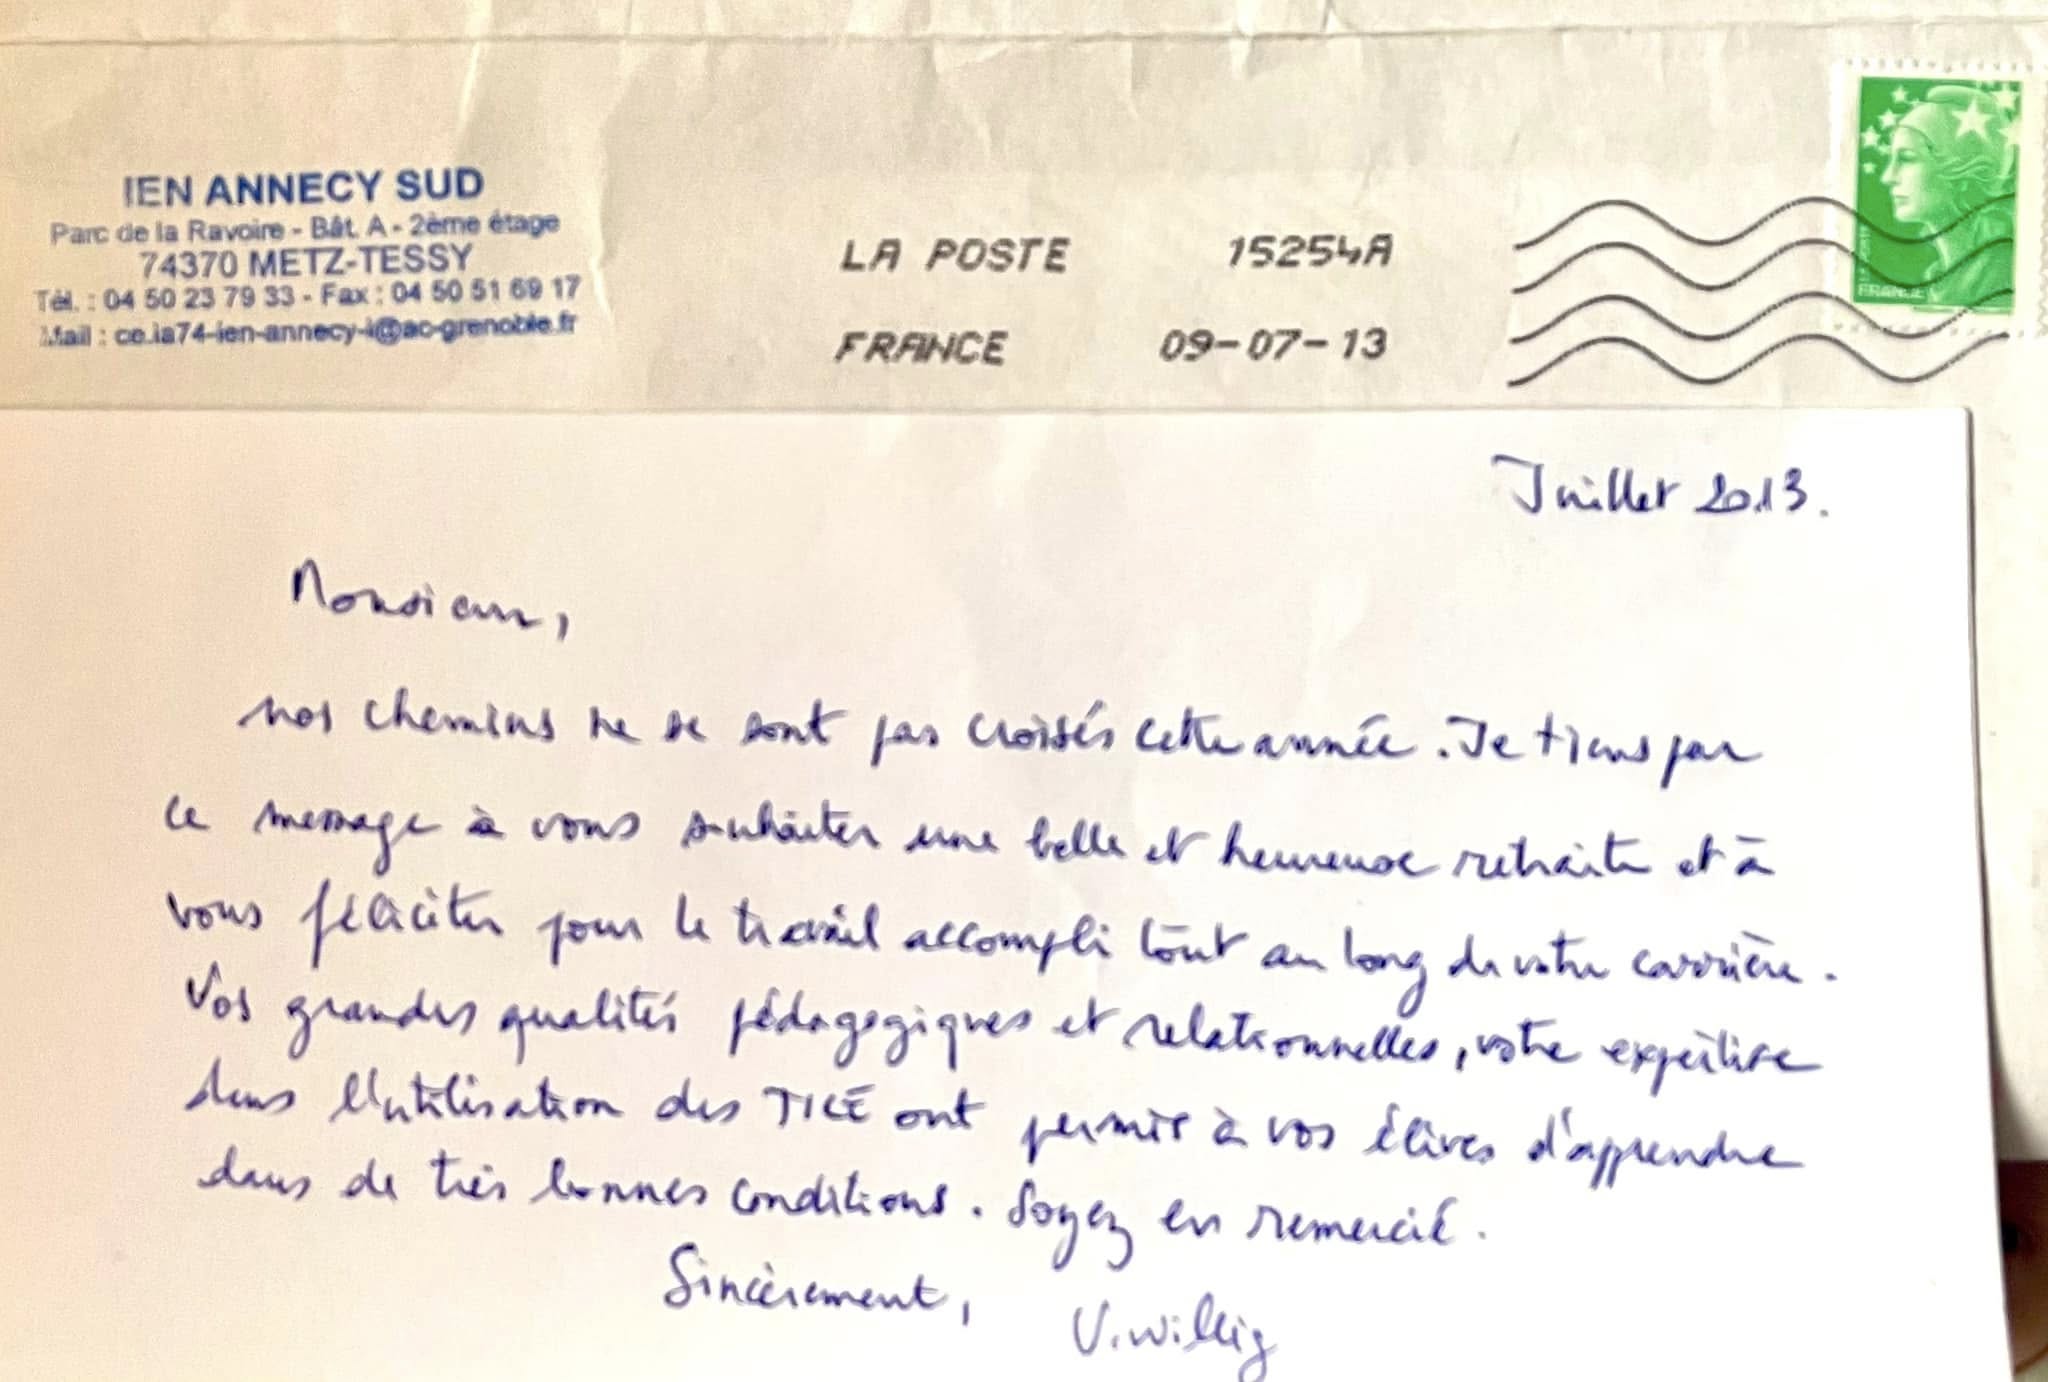 IEN ANNECY SUD
Parc de la Ravoire - Bât. A - 2ème étage
74370 METZ-TESSY
Tél. : 04 50 23 79 33 - Fax : 04 50 51 69 17
Mail : ce.ia74-ien-annecy-i@ac-grenoble.fr
LA POSTE 15254A
FRANCE 09-07-13
FRANCE
Juillet 2013.
Monsieur,
nos chemins ne se sont pas croisés cette année. Je tiens par
ce message à vous souhaiter une belle et heureuse retraite et à
vous féliciter pour le travail accompli tout au long de votre carrière.
Vos grandes qualités pédagogiques et relationnelles, votre expertise
dans l'utilisation des TICE ont permis à vos élèves d'apprendre
dans de très bonnes conditions. Soyez en remercié.
Sincèrement,
V. Willig